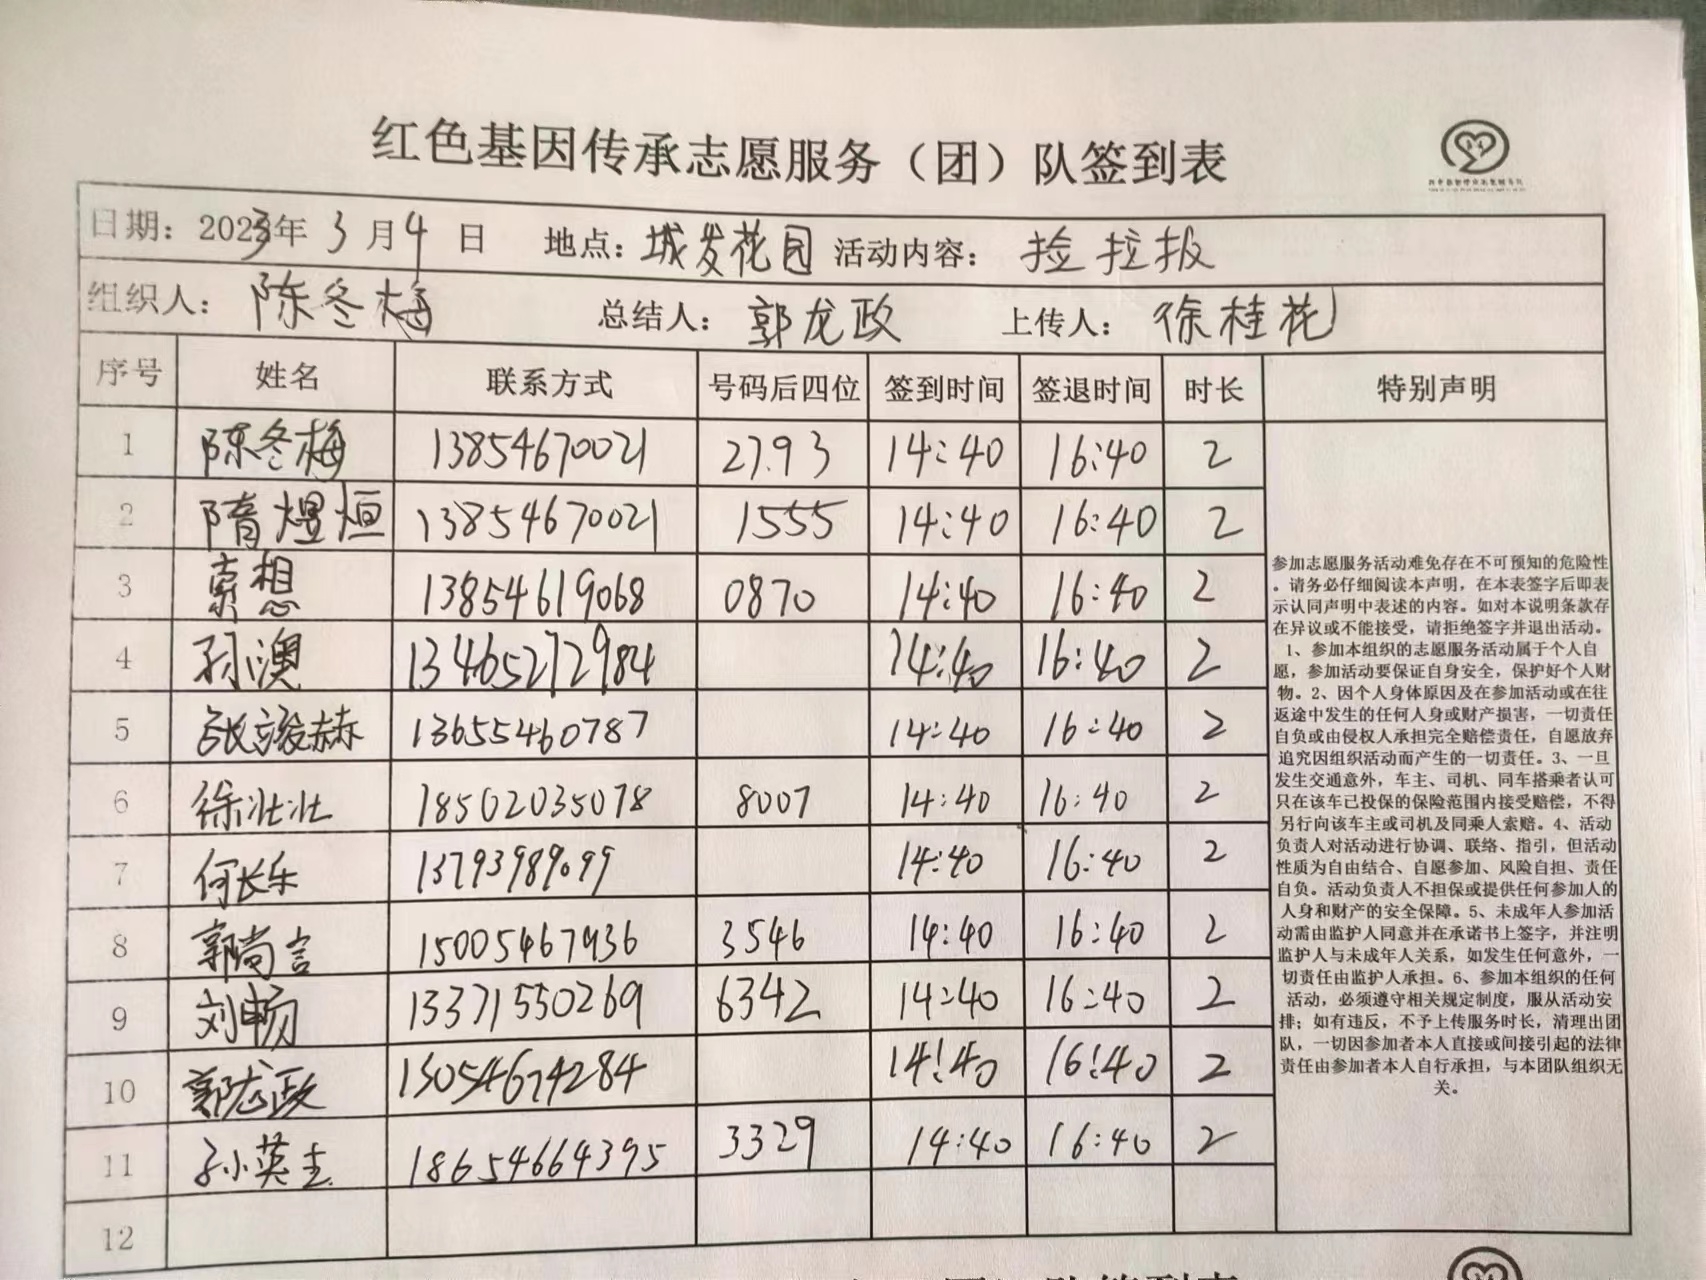 红色基因传承志愿服务（团）队签到表
日期：2023年 3月4日 地点：城发花园 活动内容：捡垃圾
组织人：陈冬梅 总结人：郭龙政 上传人：徐桂花
序号 姓名 联系方式 号码后四位 签到时间 签退时间 时长 特别声明
1 陈冬梅 13854670021 2793 14:40 16:40 2
2 隋煜恒 13854670021 1555 14:40 16:40 2
3 索想 13854619068 0870 14:40 16:40 2
4 孙澳 13465272984 14:40 16:40 2
5 张骏赫 13655460787 14:40 16:40 2
6 徐壮壮 18502035078 8007 14:40 16:40 2
7 何长乐 13793989099 14:40 16:40 2
8 郭尚言 15005467936 3546 14:40 16:40 2
9 刘畅 13371550269 6342 14:40 16:40 2
10 郭龙政 13054674284 14:40 16:40 2
11 孙英 18654664395 3329 14:40 16:40 2
12
参加志愿服务活动难免存在不可预知的危险性
。请务必仔细阅读本声明，在本表签字后即表
示认同声明中表述的内容。如对本说明条款存
在异议或不能接受，请拒绝签字并退出活动。
1、参加本组织的志愿服务活动属于个人自
愿，参加活动要保证自身安全，保护好个人财
物。2、因个人身体原因及在参加活动或在往
返途中发生的任何人身或财产损害，一切责任
自负或由侵权人承担完全赔偿责任，自愿放弃
追究因组织活动而产生的一切责任。3、一旦
发生交通意外，车主、司机、同车搭乘者认可
只在该车已投保的保险范围内接受赔偿，不得
另行向该车主或司机及同乘人索赔。4、活动
负责人对活动进行协调、联络、指引，但活动
性质为自由结合、自愿参加、风险自担、责任
自负。活动负责人不担保或提供任何参加人的
人身和财产的安全保障。5、未成年人参加活
动需由监护人同意并在承诺书上签字，并注明
监护人与未成年人关系，如发生任何意外，一
切责任由监护人承担。6、参加本组织的任何
活动，必须遵守相关规定制度，服从活动安
排；如有违反，不予上传服务时长，清理出团
队，一切因参加者本人直接或间接引起的法律
责任由参加者本人自行承担，与本团队组织无
关。